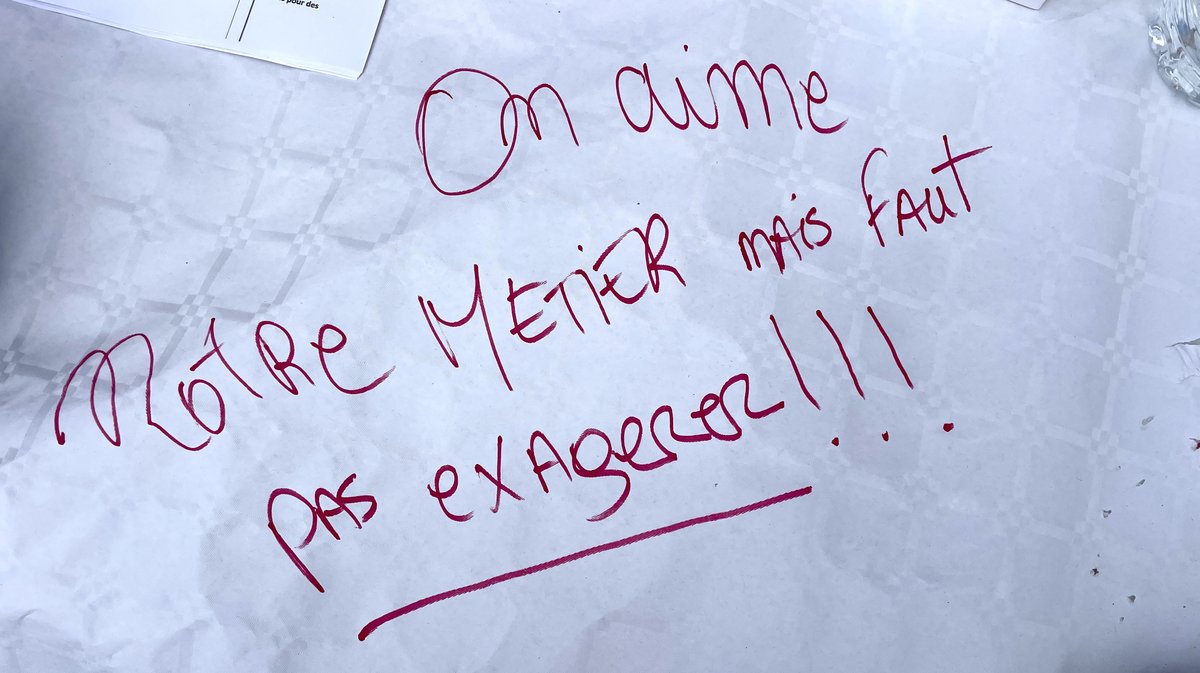 s pour des
On aime
Notre METiER mais FAUT
pas exagerer!!!